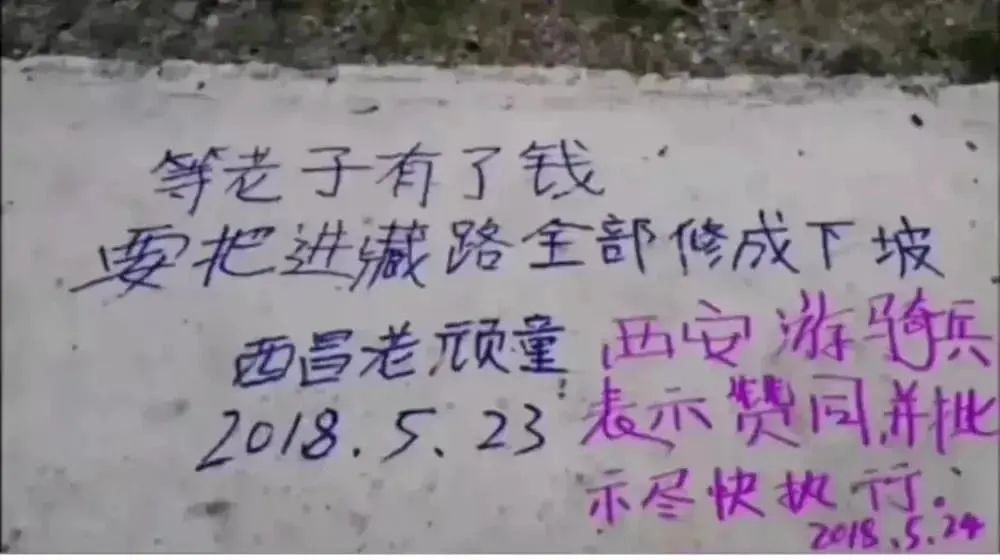 等老子有了钱
要把进藏路全部修成下坡
西昌老顽童
2018.5.23
西安游骑兵
表示赞同,并批
示尽快执行.
2018.5.24